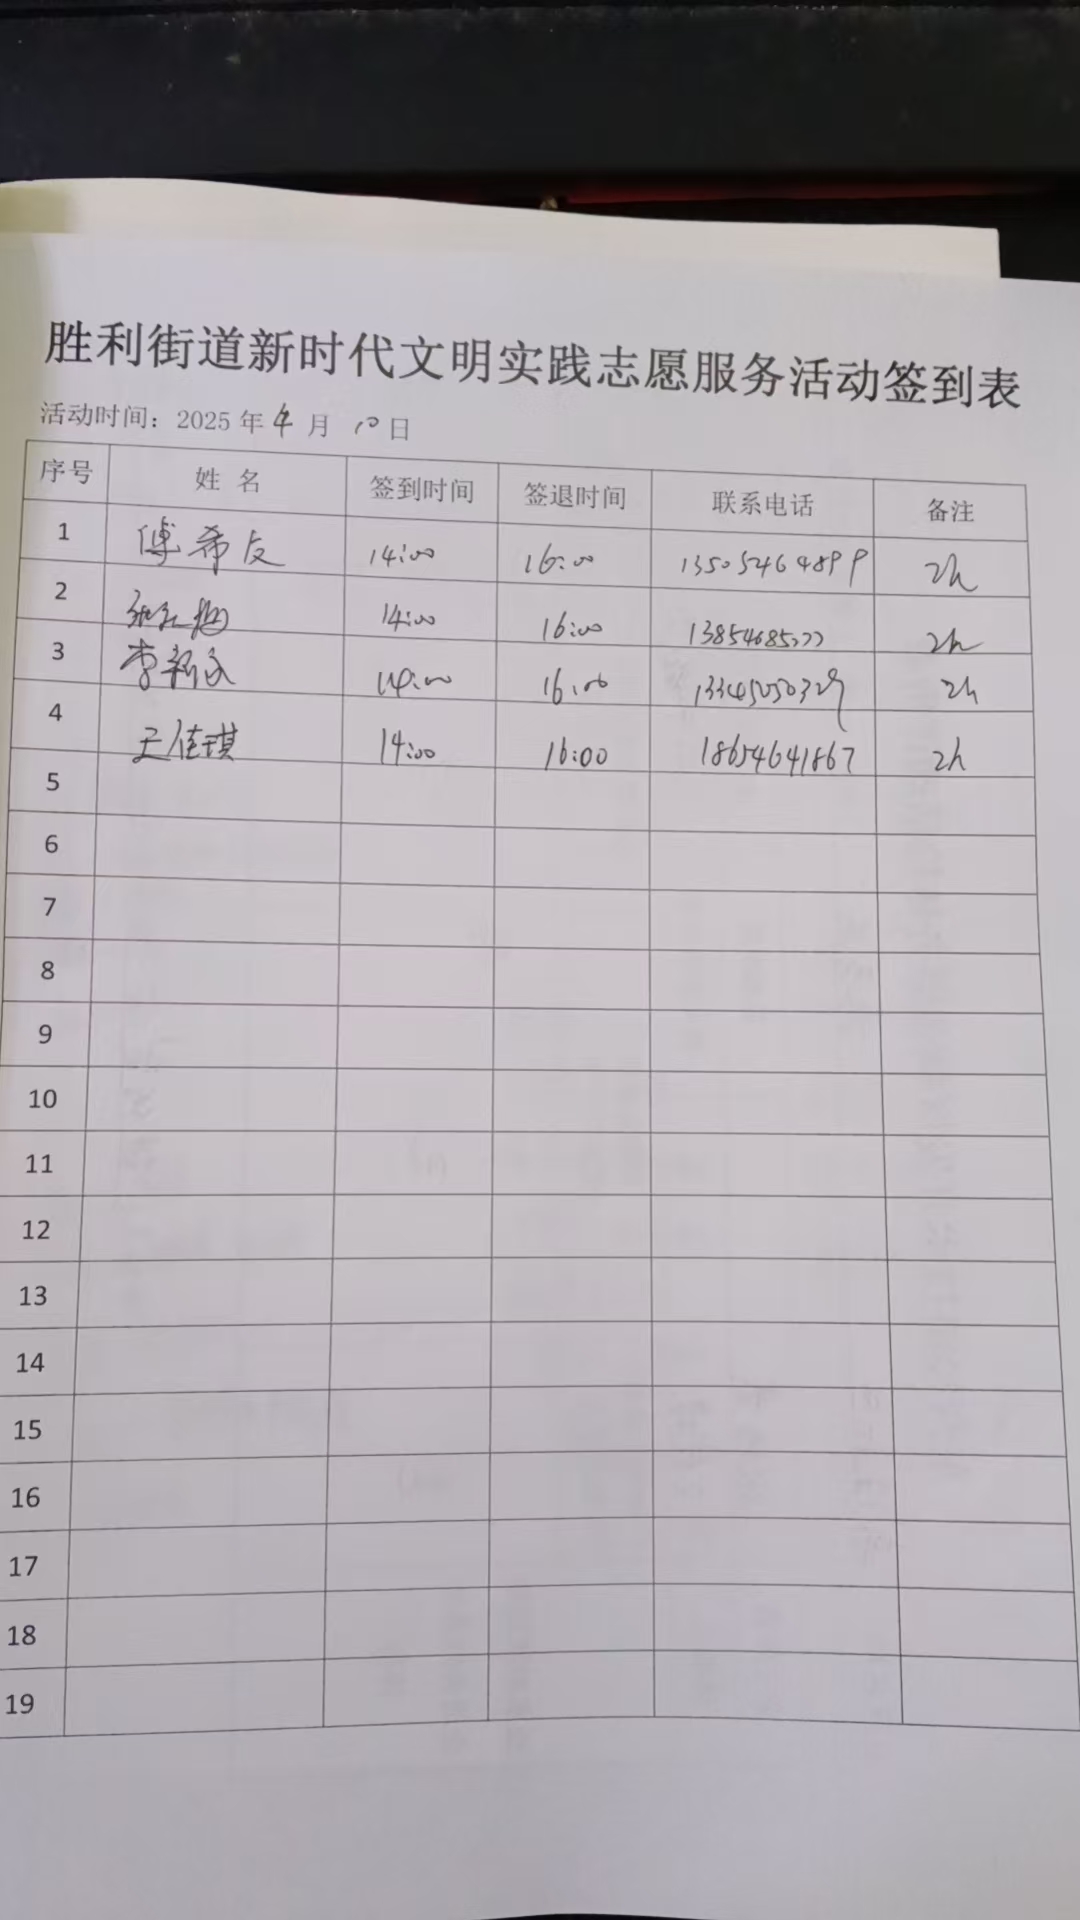 胜利街道新时代文明实践志愿服务活动签到表
活动时间：2025 年 4 月 10 日
序号 姓 名 签到时间 签退时间 联系电话 备注
1 傅希友 14:00 16:00 13505464899 2h
2 14:00 16:00 2h
3 李新民 14:00 16:00 13345050329 2h
4 王佳琪 14:00 16:00 18654641867 2h
5
6
7
8
9
10
11
12
13
14
15
16
17
18
19